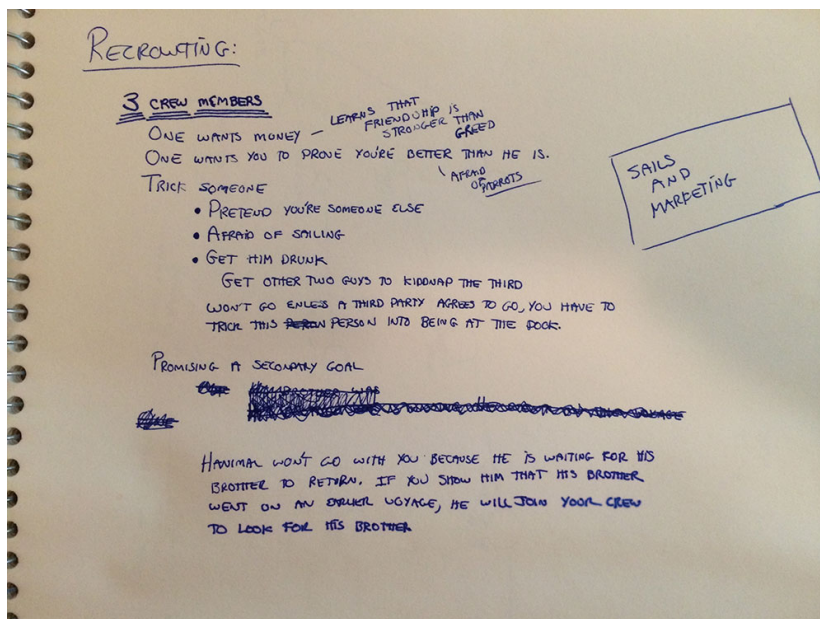 RECROUTING:
3 CREW MEMBERS
ONE WANTS MONEY – LEARNS THAT
FRIENDSHIP IS
STRONGER THAN
GREED
ONE WANTS YOU TO PROVE YOU'RE BETTER THAN HE IS.
AFRAID
OF PARROTS
TRICK SOMEONE
• PRETEND YOU'RE SOMEONE ELSE
• AFRAID OF SAILING
• GET HIM DRUNK
GET OTHER TWO GUYS TO KIDDNAP THE THIRD
WON'T GO ENLESS A THIRD PARTY AGREES TO GO, YOU HAVE TO
TRICK THIS PERSON INTO BEING AT THE DOCK.
SAILS
AND
MARKETING
PROMISING A SECONDARY GOAL
HANIMAL WON'T GO WITH YOU BECAUSE HE IS WAITING FOR HIS
BROTHER TO RETURN. IF YOU SHOW HIM THAT HIS BROTHER
WENT ON AN EARLIER VOYAGE, HE WILL JOIN YOUR CREW
TO LOOK FOR HIS BROTHER